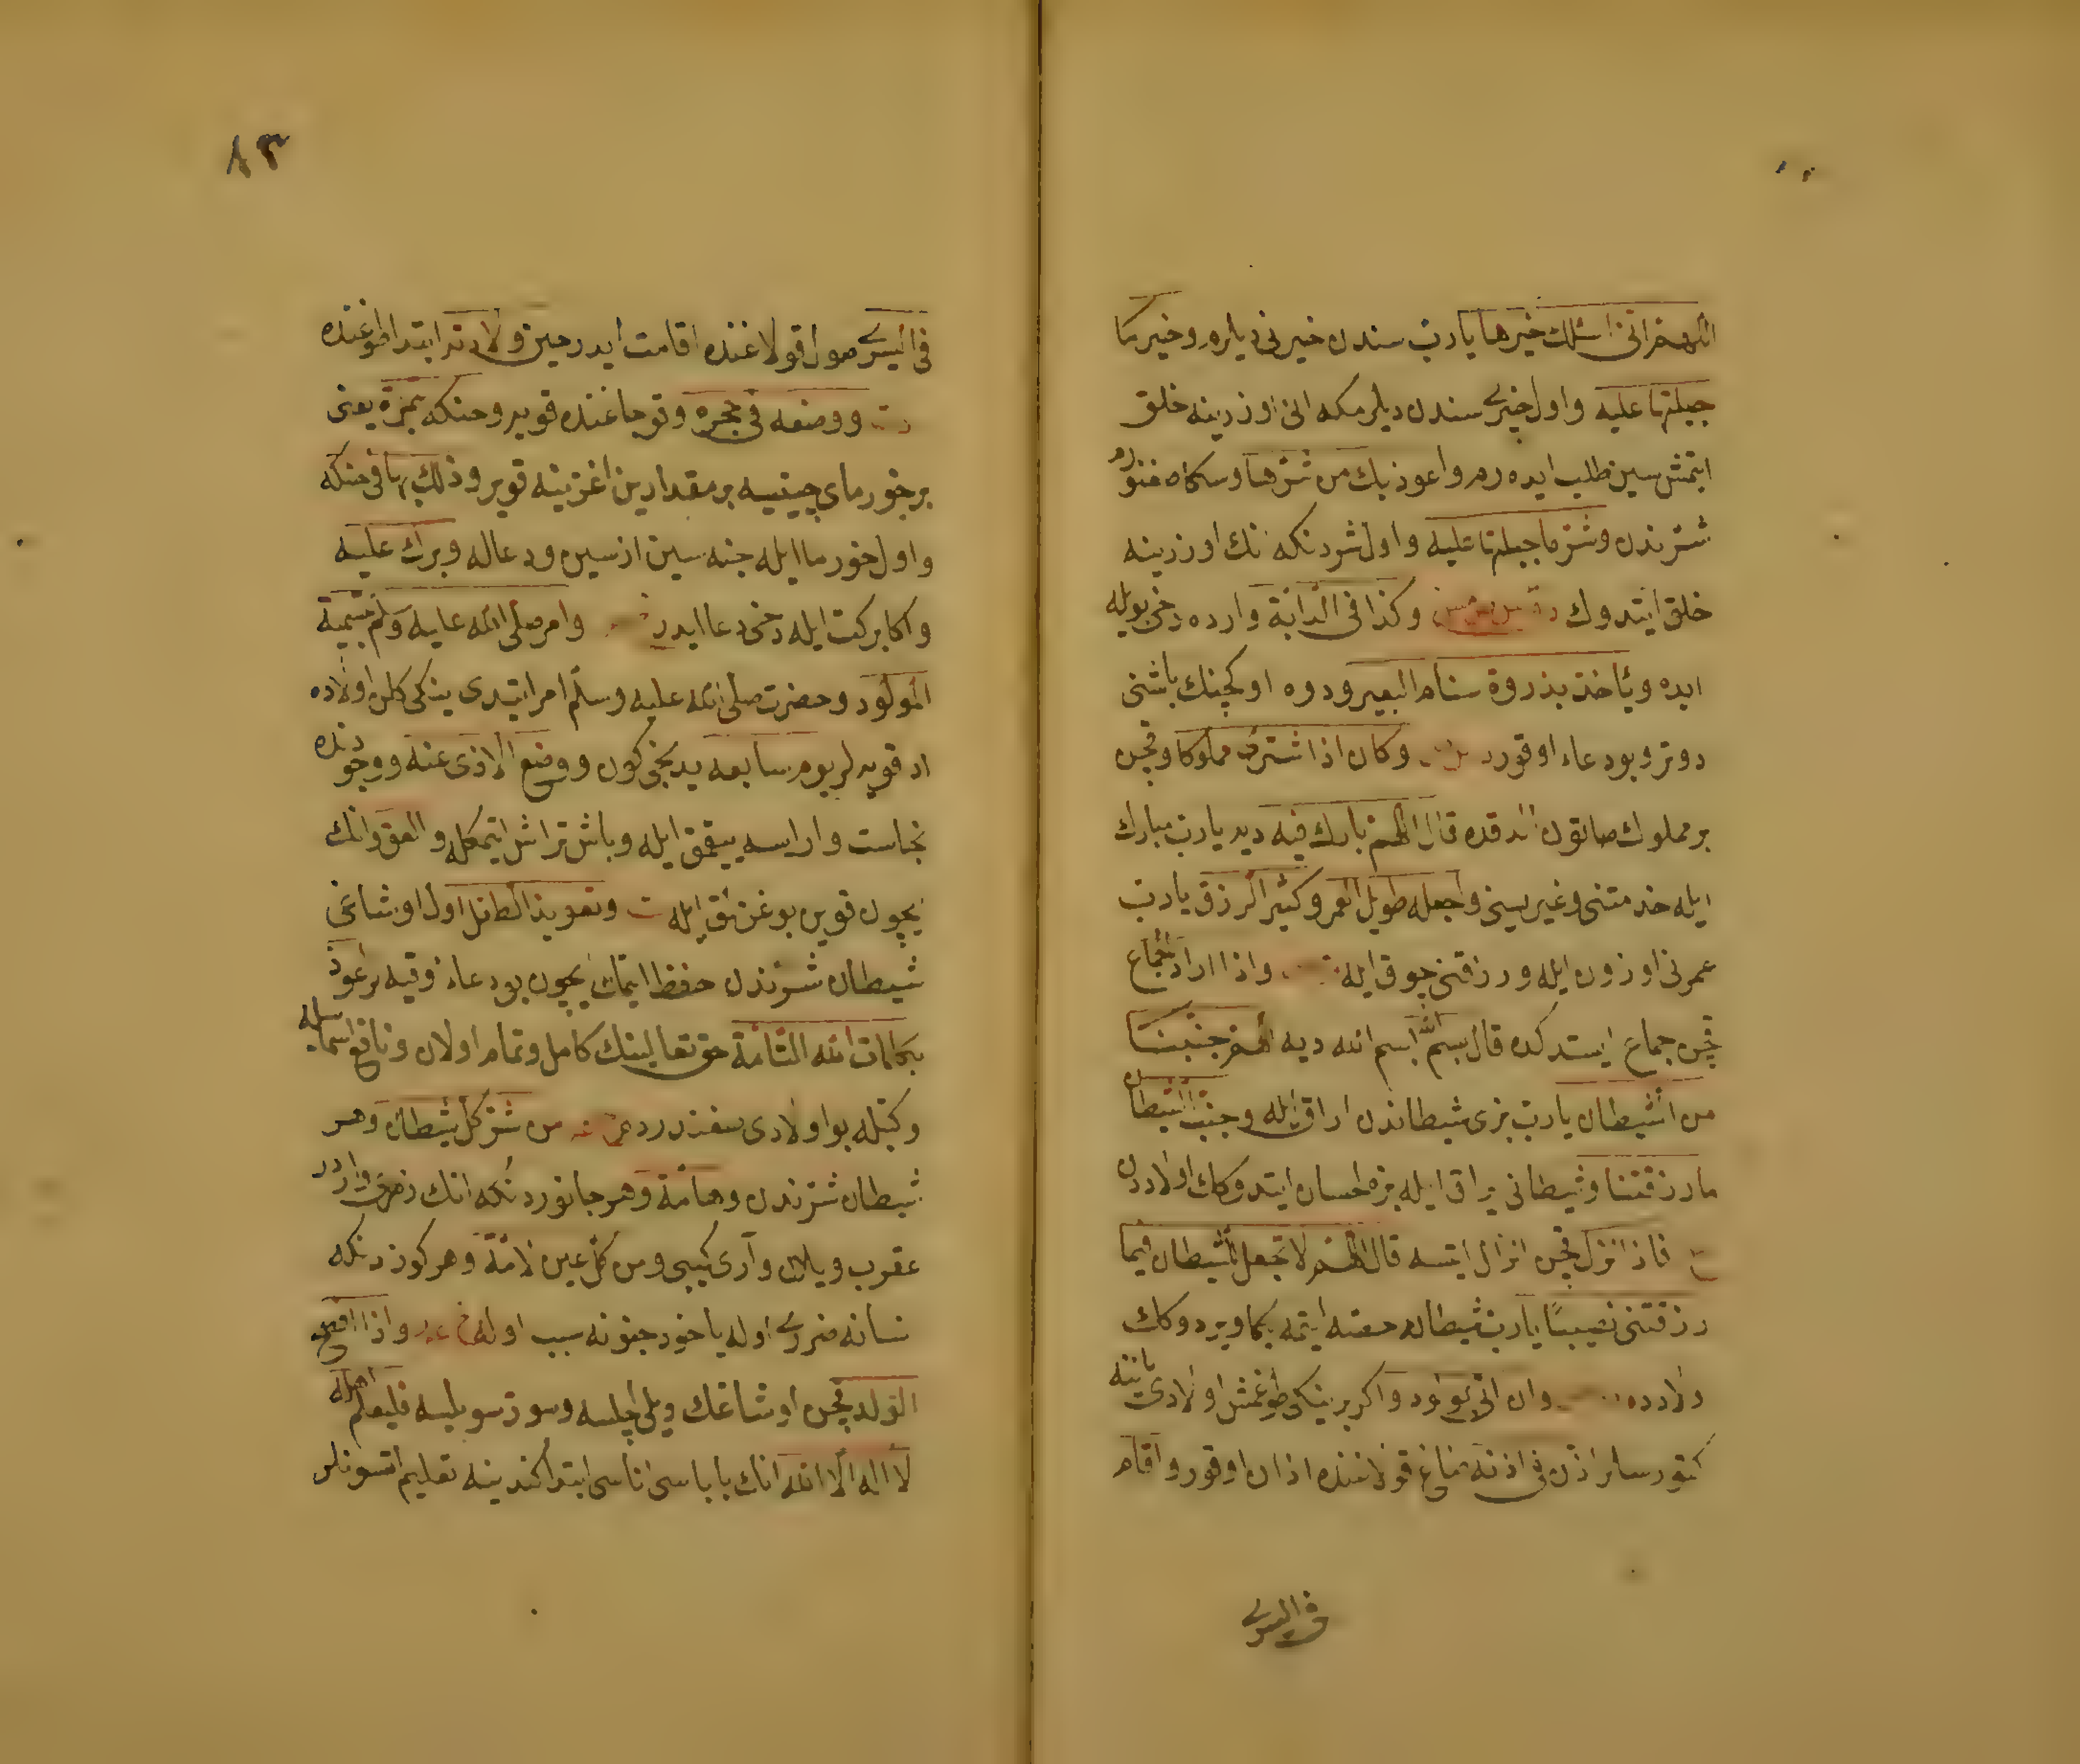 اللهم انى اسئلك خيرها يا رب سندن خيرنى ديلرم وخير ما
جبلتها عليه واول خيرى سندن ديلرمكه انى اوزرينه خلق
ايتمشسين طلب ايده رم واعوذ بك من شرها وسكا صغنورم
شرندن وشر ما جبلتها عليه واول شردنكه انك اوزرينه
خلق ايتدوك وكذا فى الدابة وارده دخى بويله
ايده ويأخذ بذروة سنام البعير ودوه اوكجنك باشنى
دوتر وبو دعاء اوقور وكان اذا اشترى مملوكا وقچن
بر مملوك صاتون الدقده قال اللهم بارك فيه ديه يا رب مبارك
ايله خدمتنى وغيريسنى واجعله طويل العمر وكثير الرزق يا رب
عمرنى اوزون ايله ورزقنى چوق ايله واذا اراد الجماع
قچن جماع ايستدكده قال بسم الله بسم الله ديه اللهم جنبنا
من الشيطان يا رب بزى شيطاندن اراق ايله وجنب الشيطان
ما رزقتنا وشيطانى يراق ايله بزه احسان ايتدوكك اولاددن
فاذا انزل قچن انزال ايتسه قال اللهم لا تجعل للشيطان فيما
رزقتنى نصيبا يا رب شيطانه حصه ايتمه بكا ويردوكك
ولادده وان اتى بمولود واكر بر ينكى طوغمش اولادى ياننه
كتورسلر اذن فى اذنه صاغ قولاغنده اذان اوقور واقام
فى اليسرى
٨٣
فى اليسرى صول قولاغنده اقامت ايدر حين ولادته ابتدا طوغنده
ووضعه فى حجره وقوجاغنده قوير وحنكه بتمرة يعنى
بر خورماى چيينيسه بر مقدارين اغزينه قوير وذلك بها فى حنكه
واول خورما ايله چنه سين ازسين ودعاله وبرك عليه
واكا بركت ايله دخى دعا ايدر وامر صلى الله عليه وسلم بتسمية
المولود وحضرت صلى الله عليه وسلم امر ايتدى ينكى كلن اولاده
اد قويه لر يوم سابعه يدنجى كون ووضع الاذى عنه ووجودنده
نجاست وارايسه ييقمق ايله وباش تراش ايتمكله والعق وانك
ايچون قوين بوغزلمق ايله وتعويذ الطفل اول اوشاغى
شيطان شرندن حفظ ايتمك ايچون بو دعاء وقيه لر اعوذ
بكلمات الله التامة حق تعالينك كامل وتمام اولان ونافع اسماسيله
وكتبله بو اولادى من شر كل شيطان وهر
شيطان شرندن وهامة وهر جانوردنكه انك زهرى واردر
عقرب ويلان وآرى كيبى ومن كل عين لامة وهر كوزدنكه
انسانه ضررى اوله ياخود جنونه سبب اوله واذا افصح
الولد قچن اوشاغك ديلى اچلسه وسوز سويليسه فليعلم اهله
لا اله الا الله انك باباسى اناسى ابتدا كندينه تعليم اتسونلر